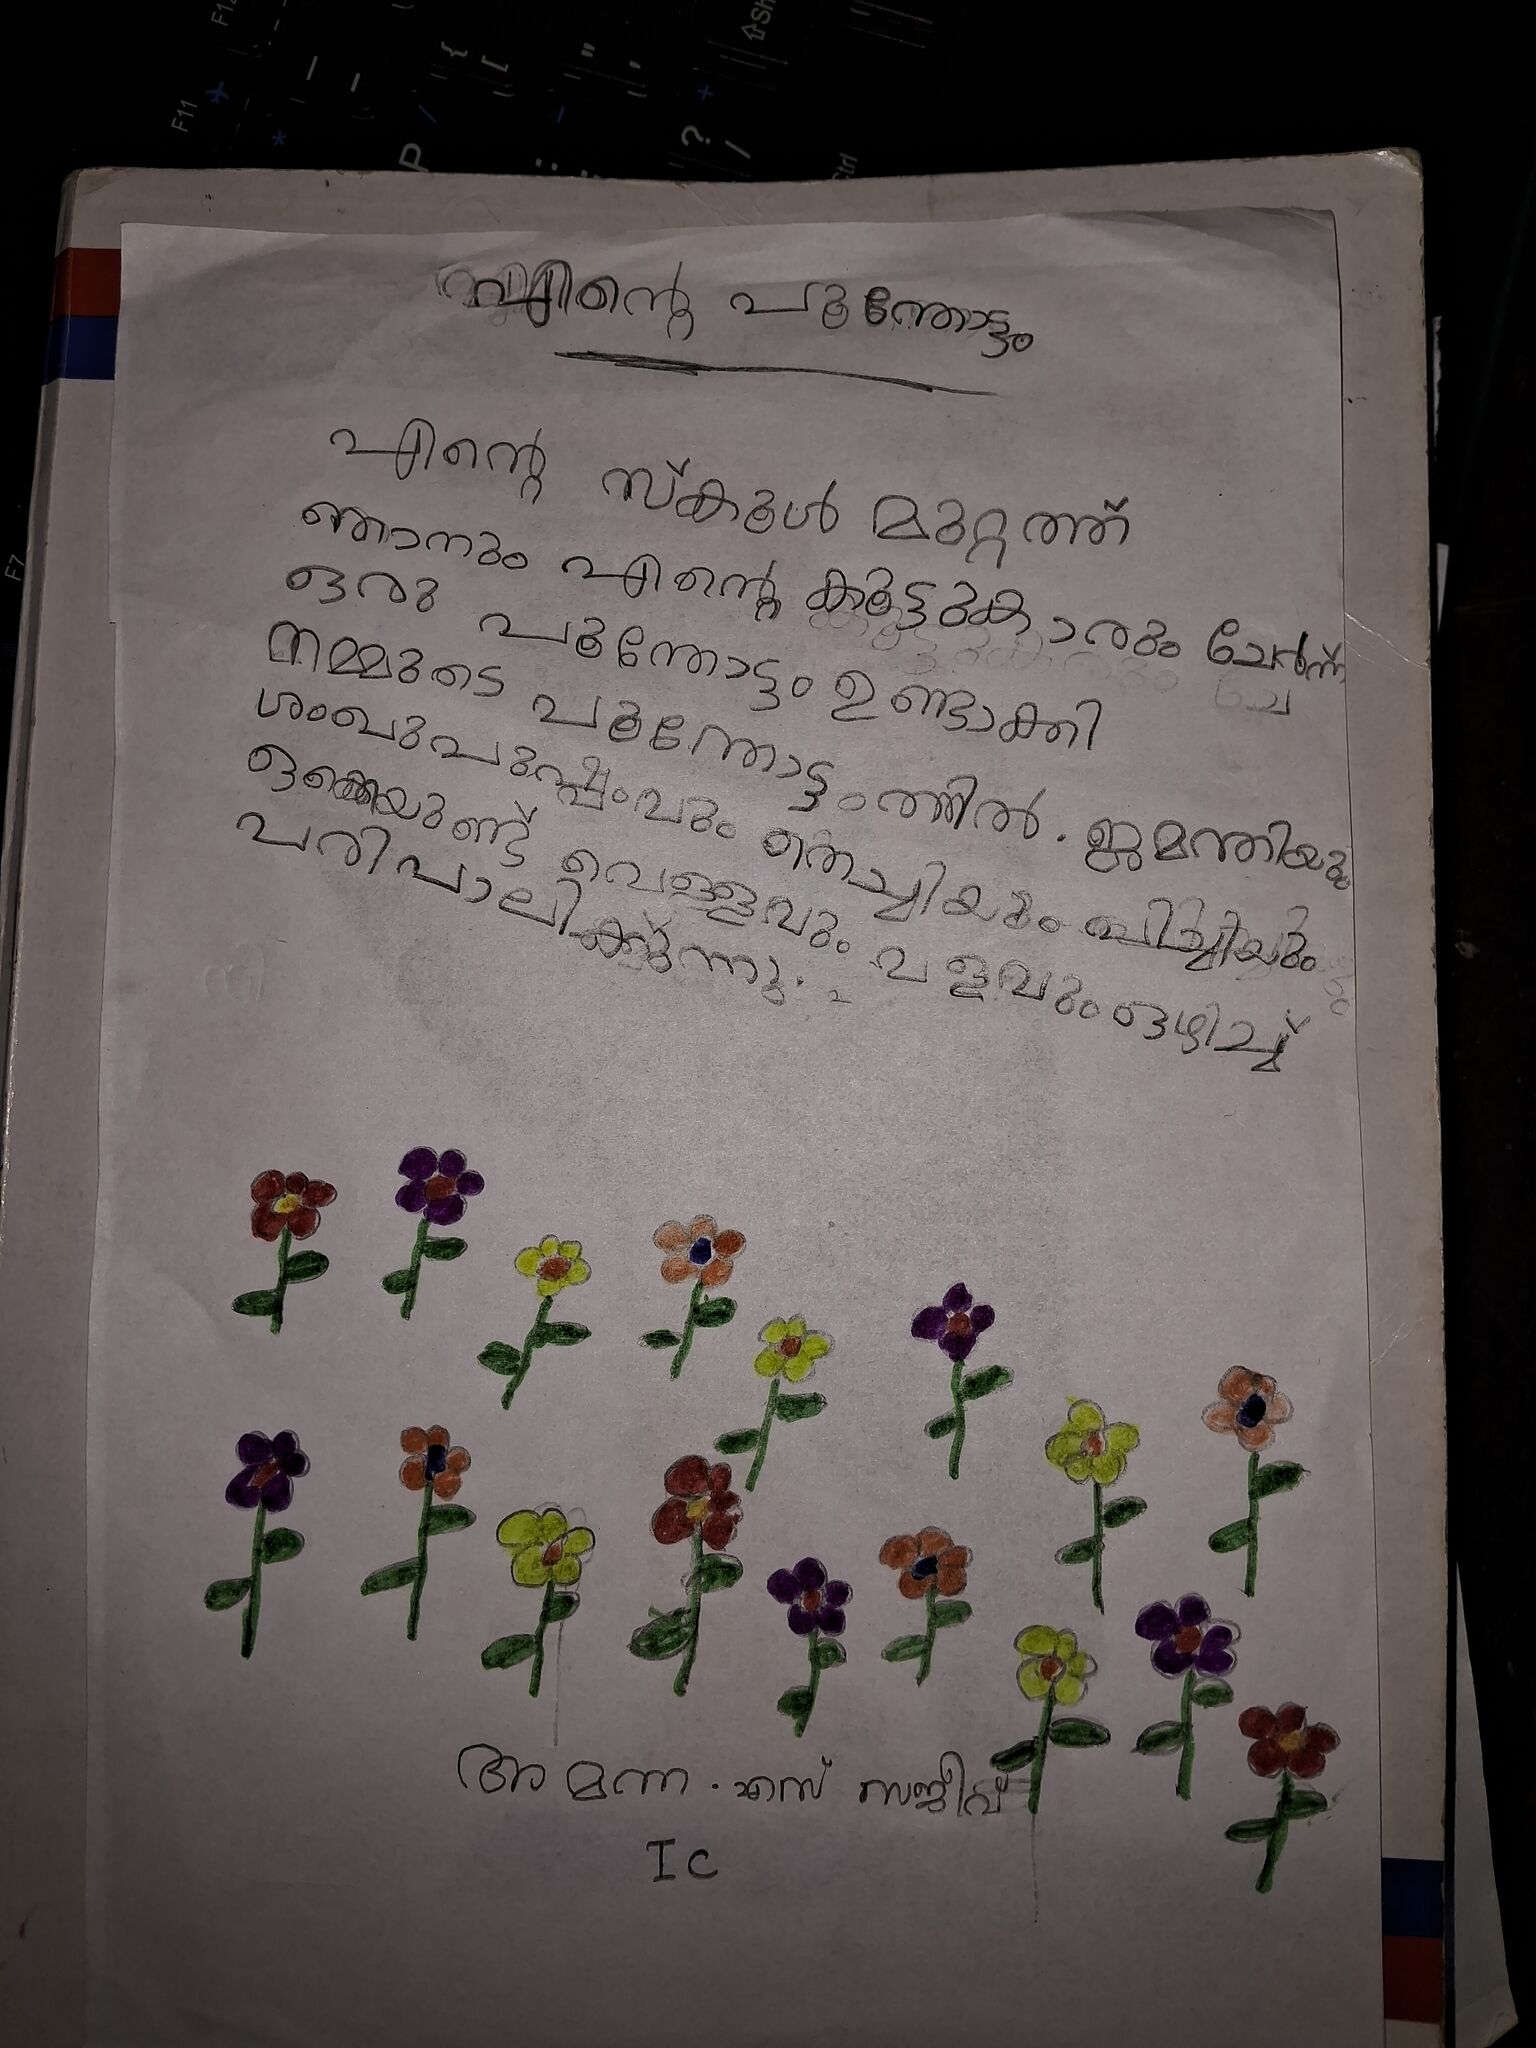 എന്റെ പൂന്തോട്ടം
എന്റെ സ്കൂൾ മുറ്റത്ത്
ഞാനും എന്റെ കൂട്ടുകാരും ചേർന്ന്
ഒരു പൂന്തോട്ടം ഉണ്ടാക്കി
നമ്മുടെ പൂന്തോട്ടംത്തിൽ. ജമന്തിയും
ശംഖുപുഷ്പംവും തെച്ചിയും പിച്ചിയും
ഒക്കെയുണ്ട് വെള്ളവും വളവും ഒഴിച്ച്
പരിപാലിക്കുന്നു.
അമന്ന. എസ് സജീവ്
I C